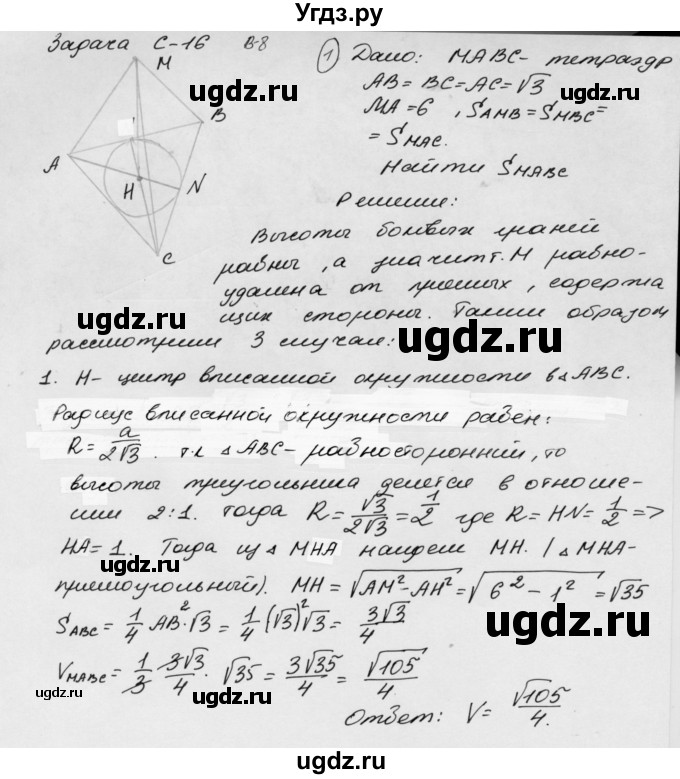 Угдз.ру
Задача С-16 В-8
M
B
A
H
N
C
1 Дано: MABC- тетраэдр
AB = BC = AC = √3
MA = 6, S_AMB = S_MBC =
= S_MAC.
Найти S_MABC
Решение:
Высоты боковых граней
равны, а значит т. M равно-
удалена от прямых, содержа
щих стороны. Таким образом
рассмотрим 3 случая:
1. H- центр вписанной окружности в △ABC.
Радиус вписанной окружности равен:
R = a/2√3. т.к △ABC- равносторонний, то
высоты треугольника делется в отноше-
нии 2:1. Тогда R = √3/2√3 = 1/2 где R = HN = 1/2 =>
HA = 1. Тогда из △ MHA найдем MH. (△ MHA-
прямоугольный). MH = √(AM² - AH²) = √(6² - 1²) = √35
S_ABC = 1/4 AB²·√3 = 1/4 (√3)²√3 = 3√3/4
V_MABC = 1/3 · 3√3/4 · √35 = 3√35/4 = √105/4.
Ответ: V = √105/4.
ugdz.ru
ugdz.ru
ugdz.ru
ugdz.ru
ugdz.ru
ugdz.ru
ugdz.ru
ugdz.ru
ugdz.ru
ugdz.ru